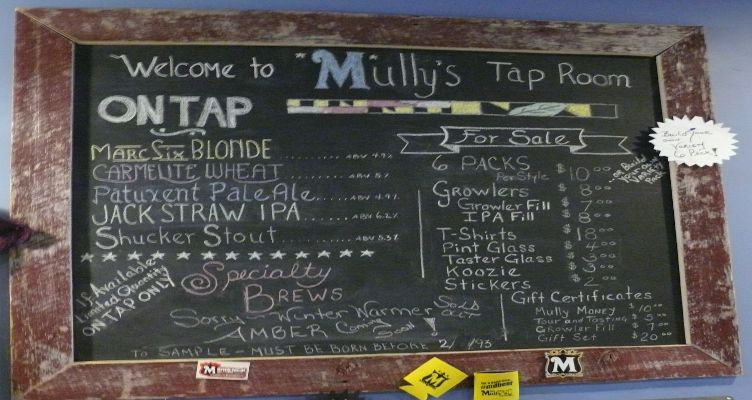 Welcome to "Mully's Tap Room
ON TAP
MARC SIX BLONDE ........ ABV 4.9%
CARMELITE WHEAT ........ ABV 5%
Patuxent Pale Ale ........ ABV 4.9%
JACK STRAW IPA ........ ABV 6.2%
Shucker Stout ........ ABV 5.3%
If Available
Limited Quantity
ON TAP ONLY
Specialty
BREWS
Sorry - Winter Warmer SOLD OUT
AMBER Coming Soon!
TO SAMPLE MUST BE BORN BEFORE 2/ /93
For Sale
6 PACKS $ 10.00
Per Style
or Build Your Own Variety Pack
Growlers $ 8.00
Growler Fill $ 7.00
IPA Fill $ 8.00
T-Shirts $ 18.00
Pint Glass $ 4.00
Taster Glass $ 3.00
Koozie $ 3.00
Stickers $ 2.00
Gift Certificates
Mully Money $10.00
Tour and Tasting $ 5.00
Growler Fill $ 7.00
Gift Set $20.00
Build Your
own
Variety
6 Pack!
M
M